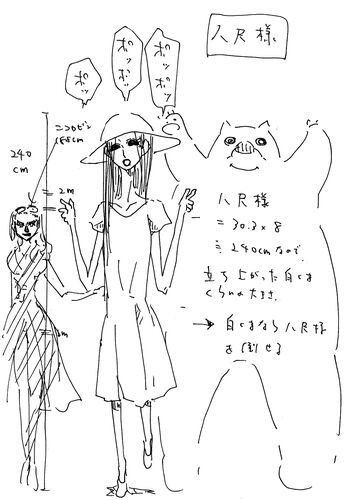 八尺様
ポッ
ポッポッ
ポッポッ
240
cm
2m
八尺様
=30.3×8
≒240cmなので
立ち上がった白くま
くらいの大きさ
→白くまなら八尺様
を倒せる